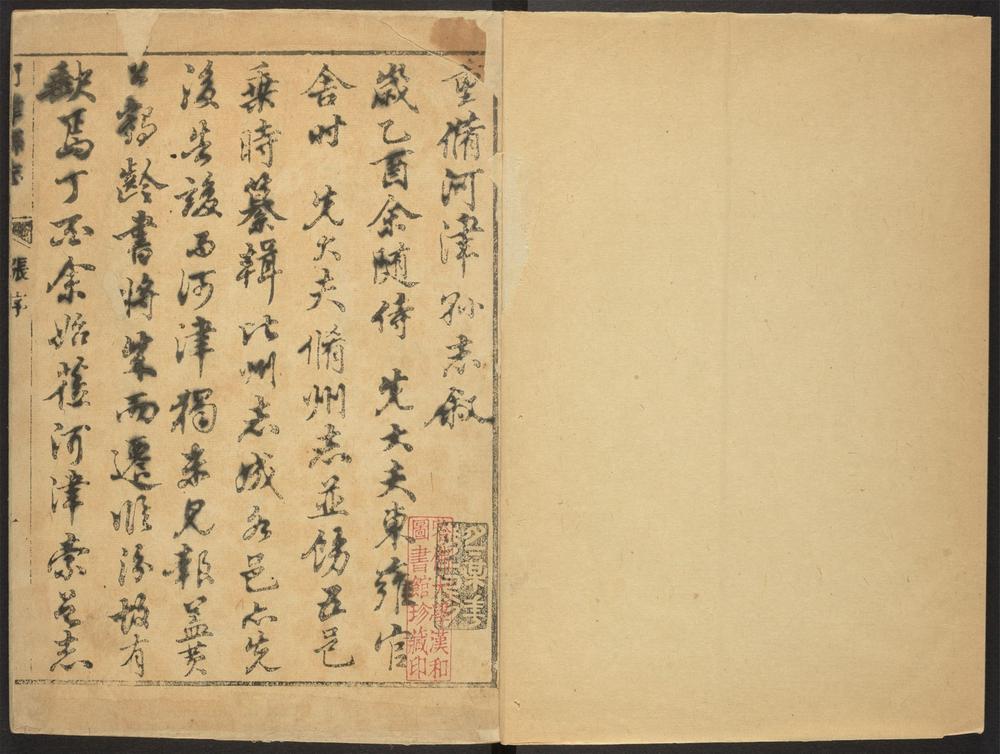 重脩河津縣志敘
歲乙酉余隨侍 先大夫東雍官
舍時 先大夫脩州志並飭五邑
乘時纂輯比州志成各邑亦先
後告竣而河津獨未見報蓋黃
公鶴齡書將成而遷臨汾故有
缺焉丁余始蒞河津索志
河津縣志 張序
哈佛大學漢和
圖書館珍藏印